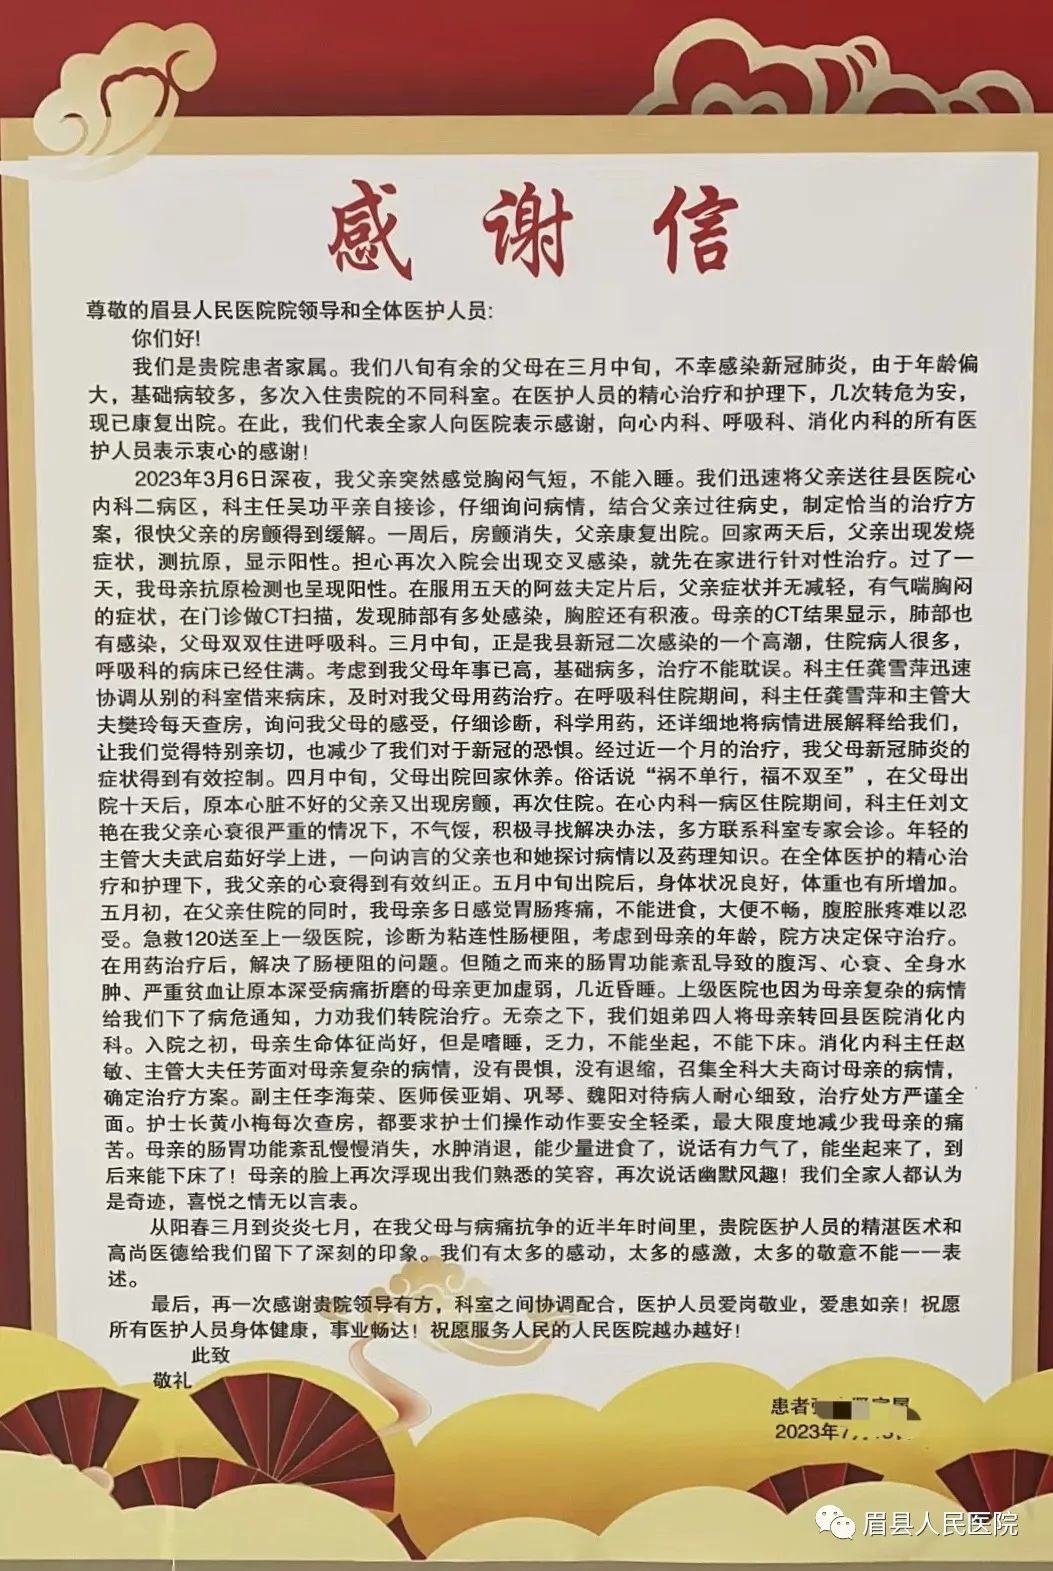 感谢信
尊敬的眉县人民医院院领导和全体医护人员:
你们好!
我们是贵院患者家属。我们八旬有余的父母在三月中旬，不幸感染新冠肺炎，由于年龄偏
大，基础病较多，多次入住贵院的不同科室。在医护人员的精心治疗和护理下，几次转危为安，
现已康复出院。在此，我们代表全家人向医院表示感谢，向心内科、呼吸科、消化内科的所有医
护人员表示衷心的感谢！
2023年3月6日深夜，我父亲突然感觉胸闷气短，不能入睡。我们迅速将父亲送往县医院心
内科二病区，科主任吴功平亲自接诊，仔细询问病情，结合父亲过往病史，制定恰当的治疗方
案，很快父亲的房颤得到缓解。一周后，房颤消失，父亲康复出院。回家两天后，父亲出现发烧
症状，测抗原，显示阳性。担心再次入院会出现交叉感染，就先在家进行针对性治疗。过了一
天，我母亲抗原检测也呈现阳性。在服用五天的阿兹夫定片后，父亲症状并无减轻，有气喘胸闷
的症状，在门诊做CT扫描，发现肺部有多处感染，胸腔还有积液。母亲的CT结果显示，肺部也
有感染，父母双双住进呼吸科。三月中旬，正是我县新冠二次感染的一个高潮，住院病人很多，
呼吸科的病床已经住满。考虑到我父母年事已高，基础病多，治疗不能耽误。科主任龚雪萍迅速
协调从别的科室借来病床，及时对我父母用药治疗。在呼吸科住院期间，科主任龚雪萍和主管大
夫樊玲每天查房，询问我父母的感受，仔细诊断，科学用药，还详细地将病情进展解释给我们，
让我们觉得特别亲切，也减少了我们对于新冠的恐惧。经过近一个月的治疗，我父母新冠肺炎的
症状得到有效控制。四月中旬，父母出院回家休养。俗话说“祸不单行，福不双至”，在父母出
院十天后，原本心脏不好的父亲又出现房颤，再次住院。在心内科一病区住院期间，科主任刘文
艳在我父亲心衰很严重的情况下，不气馁，积极寻找解决办法，多方联系科室专家会诊。年轻的
主管大夫武启茹好学上进，一向讷言的父亲也和她探讨病情以及药理知识。在全体医护的精心治
疗和护理下，我父亲的心衰得到有效纠正。五月中旬出院后，身体状况良好，体重也有所增加。
五月初，在父亲住院的同时，我母亲多日感觉胃肠疼痛，不能进食，大便不畅，腹腔胀疼难以忍
受。急救120送至上一级医院，诊断为粘连性肠梗阻，考虑到母亲的年龄，院方决定保守治疗。
在用药治疗后，解决了肠梗阻的问题。但随之而来的肠胃功能紊乱导致的腹泻、心衰、全身水
肿、严重贫血让原本深受病痛折磨的母亲更加虚弱，几近昏睡。上级医院也因为母亲复杂的病情
给我们下了病危通知，力劝我们转院治疗。无奈之下，我们姐弟四人将母亲转回县医院消化内
科。入院之初，母亲生命体征尚好，但是嗜睡，乏力，不能坐起，不能下床。消化内科主任赵
敏、主管大夫任芳面对母亲复杂的病情，没有畏惧，没有退缩，召集全科大夫商讨母亲的病情，
确定治疗方案。副主任李海荣、医师侯亚娟、巩琴、魏阳对待病人耐心细致，治疗处方严谨全
面。护士长黄小梅每次查房，都要求护士们操作动作要安全轻柔，最大限度地减少我母亲的痛
苦。母亲的肠胃功能紊乱慢慢消失，水肿消退，能少量进食了，说话有力气了，能坐起来了，到
后来能下床了！母亲的脸上再次浮现出我们熟悉的笑容，再次说话幽默风趣！我们全家人都认为
是奇迹，喜悦之情无以言表。
从阳春三月到炎炎七月，在我父母与病痛抗争的近半年时间里，贵院医护人员的精湛医术和
高尚医德给我们留下了深刻的印象。我们有太多的感动，太多的感激，太多的敬意不能一一表
述。
最后，再一次感谢贵院领导有方，科室之间协调配合，医护人员爱岗敬业，爱患如亲！祝愿
所有医护人员身体健康，事业畅达！祝愿服务人民的人民医院越办越好！
此致
敬礼
患者
2023年7
眉县人民医院